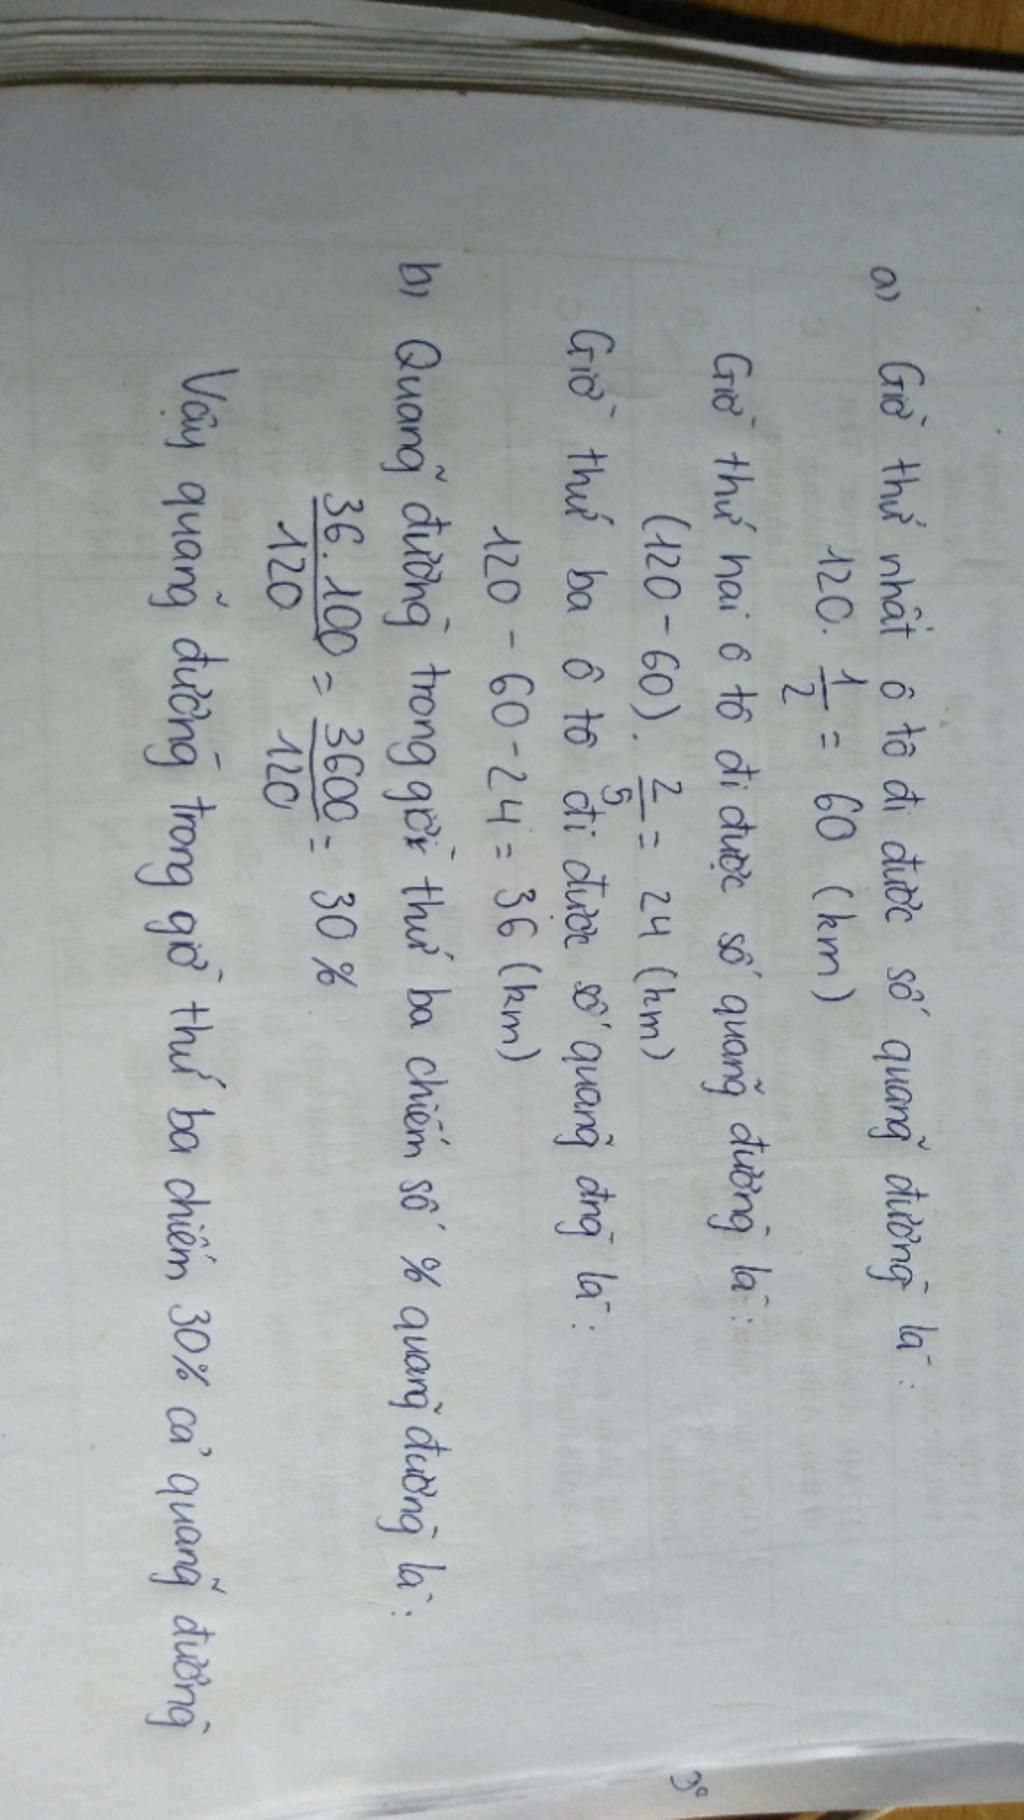 a) Giờ thứ nhất ô tô đi được số quãng đường là:
120. 1/2 = 60 (km)
Giờ thứ hai ô tô đi được số quãng đường là:
(120 - 60). 2/5 = 24 (km)
Giờ thứ ba ô tô đi được số quãng đng là:
120 - 60 - 24 = 36 (km)
b) Quãng đường trong giờ thứ ba chiếm số % quãng đường là:
36.100/120 = 3600/120 = 30%
Vậy quãng đường trong giờ thứ ba chiếm 30% cả quãng đường